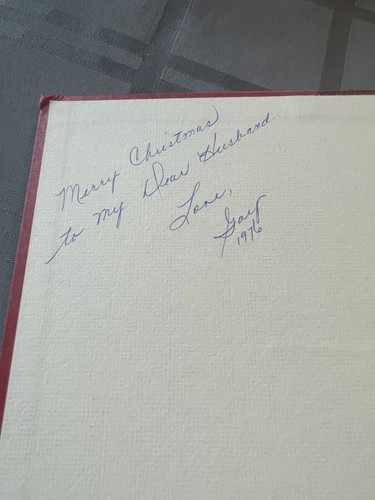 Merry Christmas
to my Dear Husband
Love,
Gay
1976